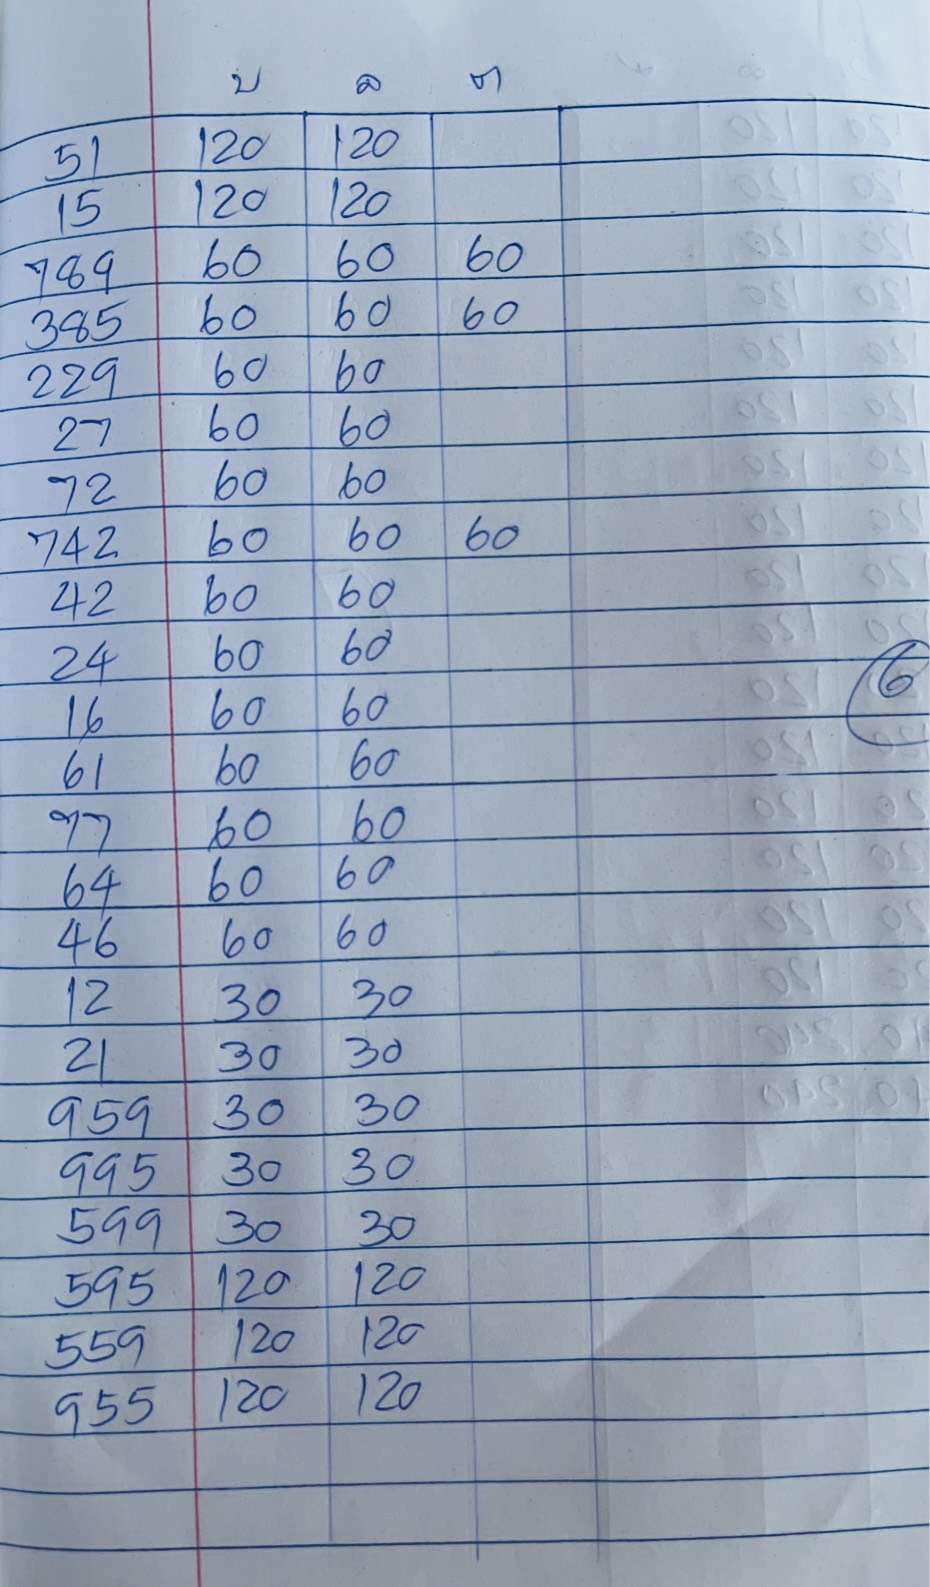 บ ล ต
51 120 120
15 120 120
789 60 60 60
385 60 60 60
229 60 60
27 60 60
72 60 60
742 60 60 60
42 60 60
24 60 60
16 60 60
61 60 60
77 60 60
64 60 60
46 60 60
12 30 30
21 30 30
959 30 30
995 30 30
599 30 30
595 120 120
559 120 120
955 120 120
6